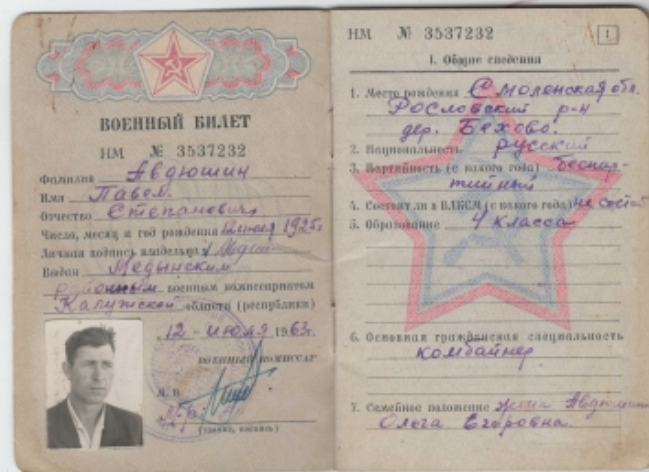 ВОЕННЫЙ БИЛЕТ
НМ № 3537232
Фамилия Авдюшин
Имя Павел
Отчество Степанович
Число, месяц и год рождения 1925г
Личная подпись владельца
Выдан Медынским
районным военным комиссариатом
Калужской области (республики)
12 июля 1963г.
ВОЕННЫЙ КОМИССАР
М. П.
(звание, подпись)
НМ № 3537232
1
I. Общие сведения
1. Место рождения Смоленская обл.
Рославский р-н
дер. Бехово.
2. Национальность русский
3. Партийность (с какого года) беспар-
тийный
4. Состоит ли в ВЛКСМ (с какого года) не состоит
5. Образование 4 класса
6. Основная гражданская специальность
комбайнер
7. Семейное положение жена Авдюшина
Ольга Егоровна.